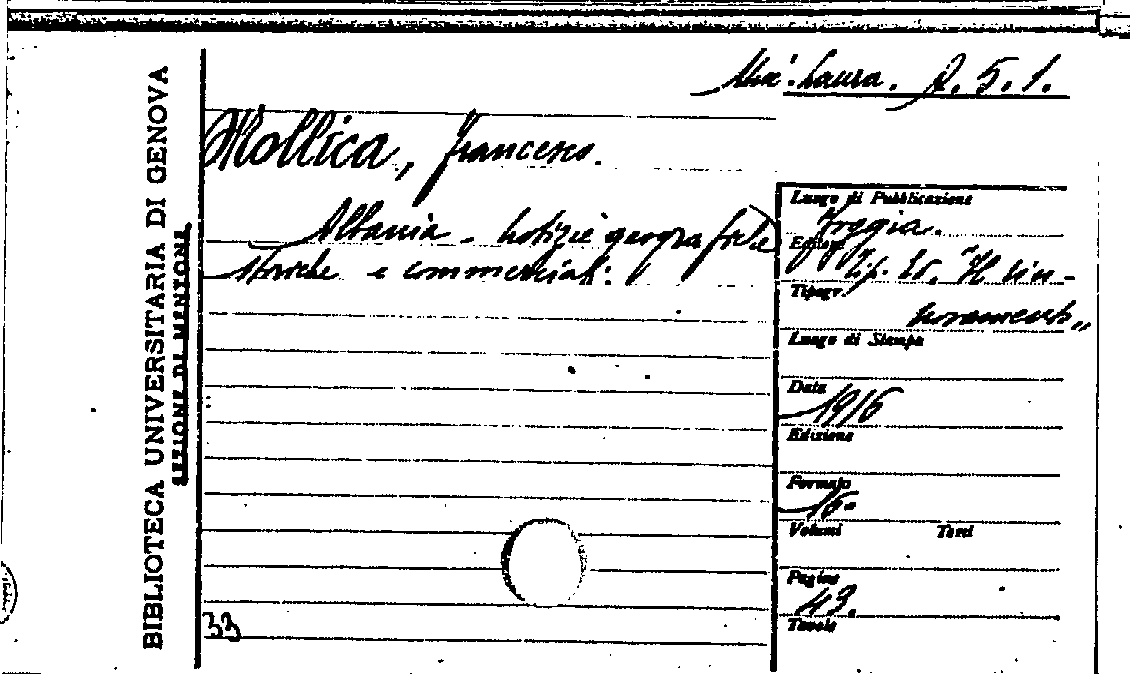 R. 5. 1.
Mollica, Francesco.
Albania - Notizie geografiche
storiche e commerciali:
33
BIBLIOTECA UNIVERSITARIA DI GENOVA
SEZIONE DI MENTONE
Luogo di Pubblicazione
Foggia.
Editore
Tip. Ed. "Il Rin-
Tipogr.
novamento„
Luogo di Stampa
Data
1916
Edizione
Formato
16°
Volumi Tomi
Pagine
43.
Tavole